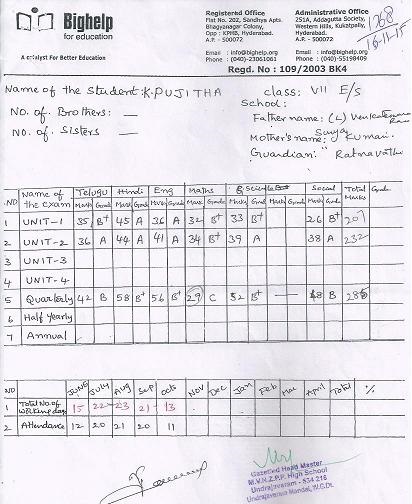 Bighelp
for education
A catalyst For Better Education
Registered Office
Flat No. 202, Sandhya Apts.
Bhagyanagar Colony,
Opp : KPHB, Hyderabad.
A.P. - 500072
Email : info@bighelp.org
Phone : (040)-23061061
Administrative Office
251A, Addagutta Society,
Western Hills, Kukatpally,
Hyderabad.
A.P. - 500072
Email : info@bighelp.org
Phone : (040)-55198409
Regd. No : 109/2003 BK4
1268
16-11-15
Name of the Student: K.PUJITHA class: VII E/S
School:
NO. of Brothers: —
Father name: (L) Venkateswara Rao
NO. of Sisters —
Mother's name: Surya Kumari
Guardian: " Ratnavathi
NO Name of the Exam Telugu Hindi Eng Maths Science Social Total Marks Grade
Mark Grade Mark Grade Mark Grade Mark Grade Mark Grade Marks Grade Marks Grade
1 UNIT-1 35 B+ 45 A 36 A 32 B+ 33 B+ 26 B+ 207
2 UNIT-2 36 A 44 A 41 A 34 B+ 39 A 38 A 232
3 UNIT-3
4 UNIT-4
5 Quarterly 42 B 58 B+ 56 B+ 29 C 52 B+ — 48 B 285
6 Half yearly
7 Annual
NO JUNE JULY Aug Sep Octs Nov Dec Jan Feb Mar April Total %
1 Total No. of Working days 15 22 23 21 13
2 Attendance 12 20 21 20 11
Gazetted Head Master
M.V.N.Z.P.P. High School
Undrajavaram - 534 216
Undrajavaram Mandal, W.G.Dt.